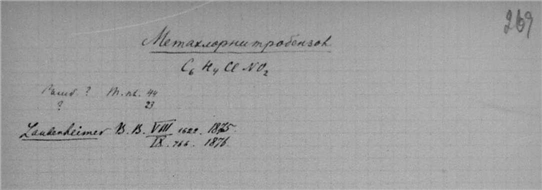 269
Метахлорнитробензов
C₆H₄Cl NO₂
? M. пл. 44
? 23
Laubenheimer B. B. VIII 1621. 1875.
IX. 766. 1876.